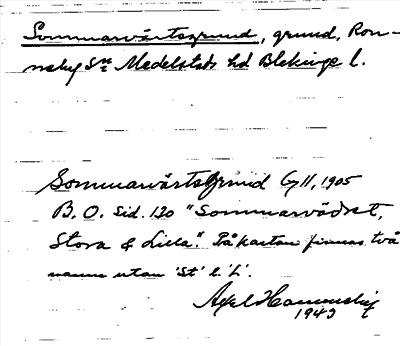 Sommarvärtsgrund, grund, Ron-
neby Sn Medelstads hd Blekinge l.
Sommarvärtsgrund 1905
B. O. Sid. 130 "Sommarvädret,
Stora & Lilla". På kartan finnas två
namn utan 'St' l. 'L'.
Axel
1943